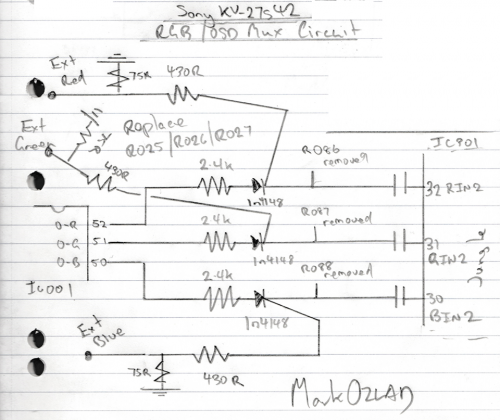 Sony KV-27S42
RGB/OSD Mux Circuit
Ext
Red
75R
430R
Ext
Green
75R
Replace
R025/R026/R027
430R
2.4k
1n4148
R086
removed
IC901
32 RIN2
O-R 52
O-G 51
O-B 50
IC001
2.4k
1n4148
R087
removed
31
GIN2
2.4k
1n4148
R088
removed
30
BIN2
Ext
Blue
75R
430R
MarkOZLAD